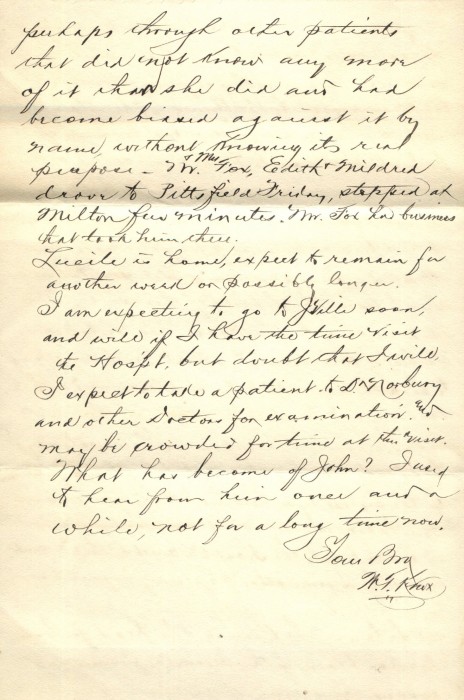 perhaps through other patients
that did not know any more
of it than she did and had
become biased against it by
name without knowing its real
purpose - Mr. & Mrs Fox, Edith & Mildred
drove to Pittsfield Friday, stopped at
Milton few minutes. Mr. Fox had business
that took him there.
Lucile is home, expect to remain for
another week or possibly longer.
I am expecting to go to J'Ville soon,
and will if I have the time visit
the Hospt. but doubt that I will.
I expect to take a patient to Dr Norbury
and other Doctors for examination. and
may be crowded for time at this visit.
What has become of John? I used
to hear from him once and a
while, not for a long time now.
Your Bro
Knox